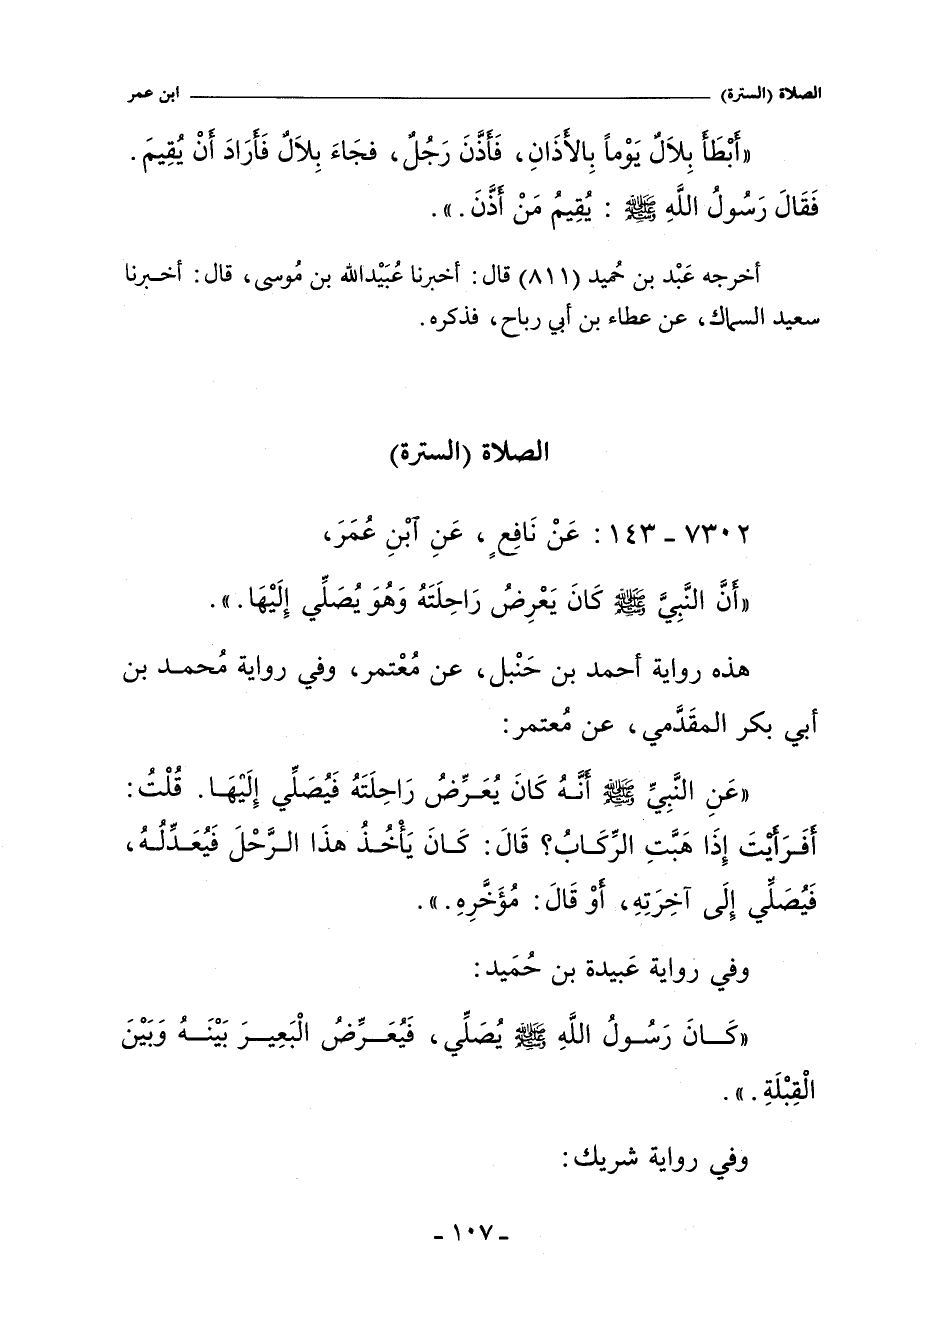 الصلاة (السترة) ابن عمر
«أَبْطَأَ بِلاَلٌ يَوْماً بِالأَذَانِ، فَأَذَّنَ رَجُلٌ، فجَاءَ بِلاَلٌ فَأَرَادَ أَنْ يُقِيمَ.
فَقَالَ رَسُولُ اللَّهِ ﷺ : يُقِيمُ مَنْ أَذَّنَ .».
أخرجه عَبْد بن حُميد (٨١١) قال: أخبرنا عُبَيْدالله بن مُوسى، قال: أخبرنا
سعيد السماك، عن عطاء بن أبي رباح، فذكره.
الصلاة (السترة)
٧٣٠٢ ـ ١٤٣: عَنْ نَافِعٍ، عَنِ ٱبْنِ عُمَرَ،
«أَنَّ النَّبِيَّ ﷺ كَانَ يَعْرِضُ رَاحِلَتَهُ وَهُوَ يُصَلِّي إِلَيْهَا.».
هذه رواية أحمد بن حَنْبل، عن مُعْتمر، وفي رواية مُحمد بن
أبي بكر المقدَّمي، عن مُعتمر:
«عَنِ النَّبِيِّ ﷺ أَنَّهُ كَانَ يُعَرِّضُ رَاحِلَتَهُ فَيُصَلِّي إِلَيْهَا. قُلْتُ:
أَفَرَأَيْتَ إِذَا هَبَّتِ الرِّكَابُ؟ قَالَ: كَانَ يَأْخُذُ هذَا الرَّحْلَ فَيُعَدِّلُهُ،
فَيُصَلِّي إِلَى آخِرَتِهِ، أَوْ قَالَ: مُؤَخَّرِهِ.».
وفي رواية عَبيدة بن حُمَيد:
«كَانَ رَسُولُ اللَّهِ ﷺ يُصَلِّي، فَيُعَرِّضُ الْبَعِيرَ بَيْنَهُ وَبَيْنَ
الْقِبْلَةِ.».
وفي رواية شريك:
ـ ١٠٧ ـ